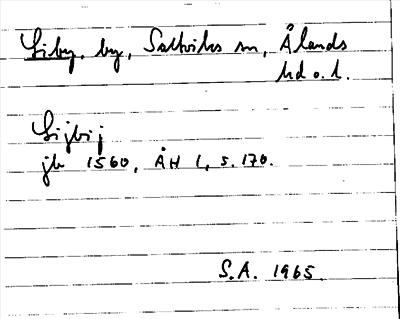 Liby, by, Saltviks sn, Ålands
hd o. l.
Lijbij
jb 1560, ÅH 1, s. 170.
S.A. 1965.